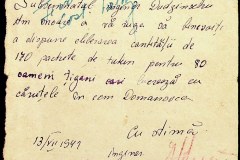 Subsemnatul
Am onoare a vă ruga să binevoiți
a dispune eliberarea cantității de
170 pachete de tutun pentru 80
oameni țigani cari lucrează cu
căruțele din com Domanovca
Cu stimă
13/VII 1943
Inginer